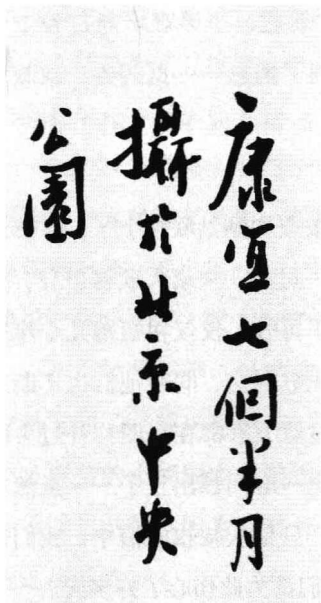 康宜七個半月
攝於北京中央
公園